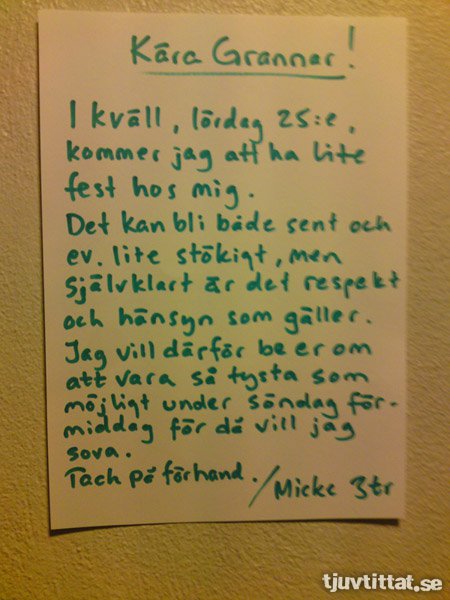 Kära Grannar!
I kväll, lördag 25:e,
kommer jag att ha lite
fest hos mig.
Det kan bli både sent och
ev. lite stökigt, men
självklart är det respekt
och hänsyn som gäller.
Jag vill därför be er om
att vara så tysta som
möjligt under söndag för-
middag för då vill jag
sova.
Tack på förhand. /Micke 3tr
tjuvtittat.se